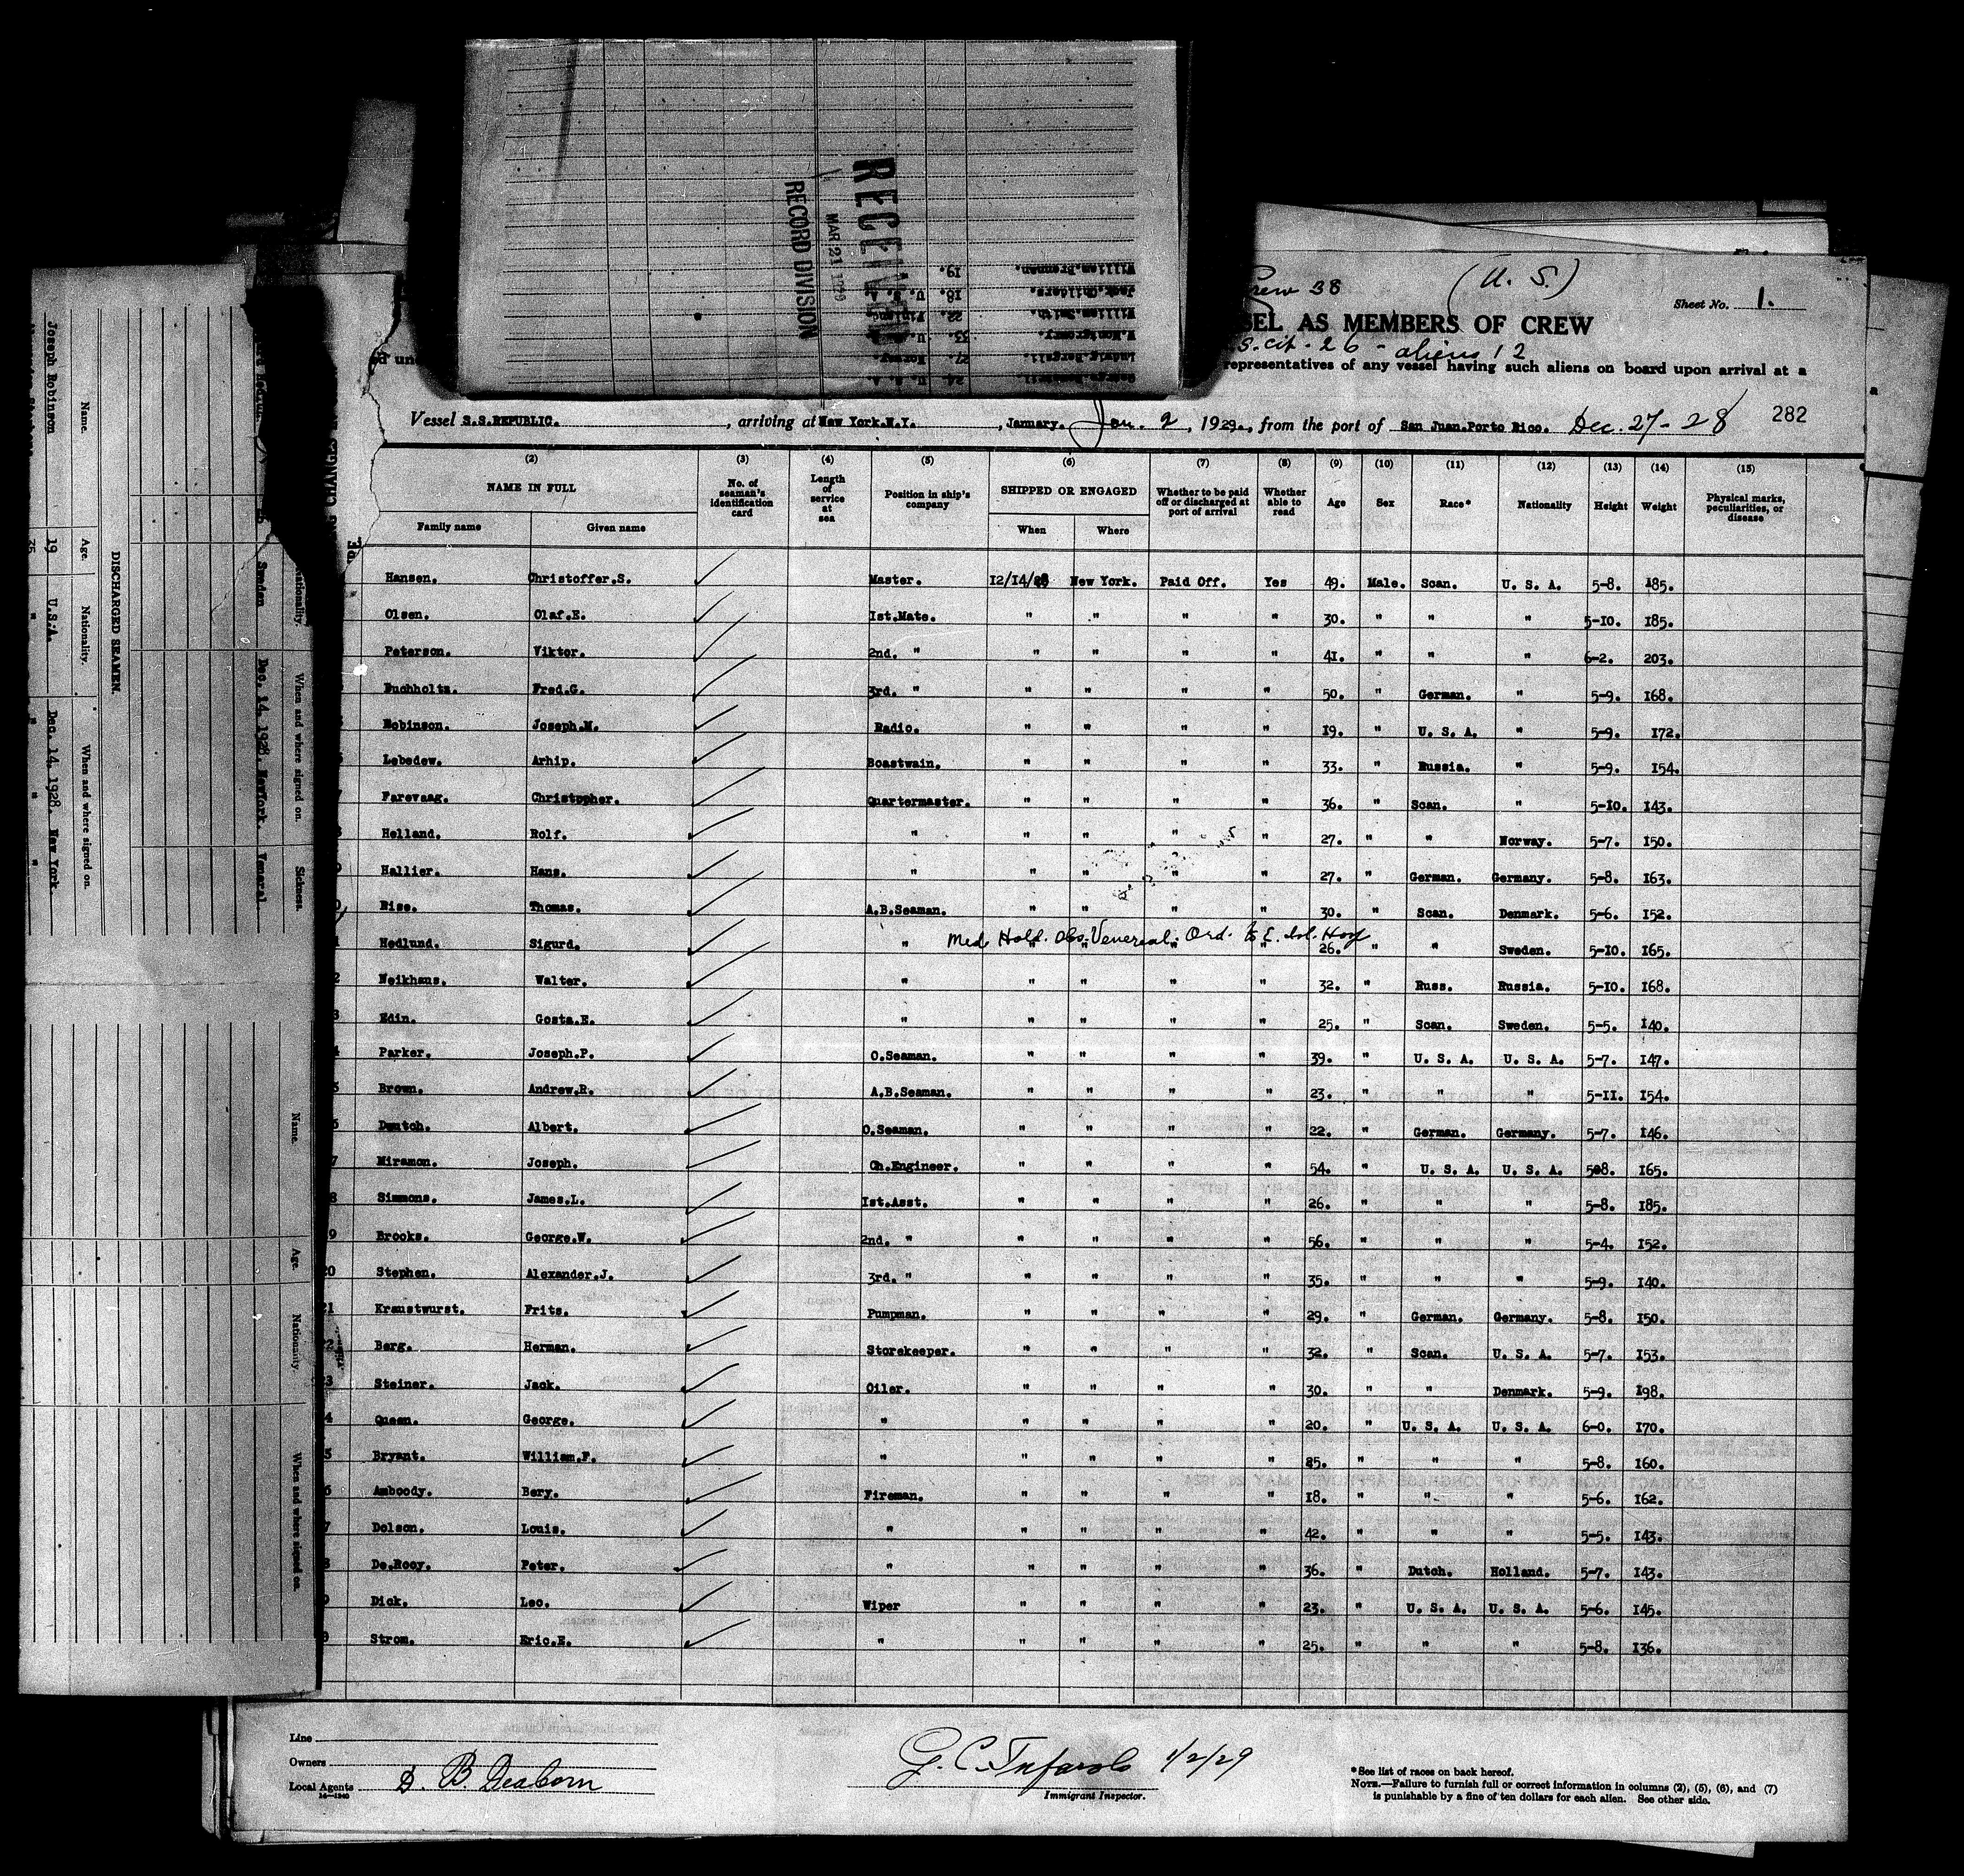 Crew 38
(U. S.)
Sheet No. 1.
AS MEMBERS OF CREW
cit - 26 - aliens 12
representatives of any vessel having such aliens on board upon arrival at a
Vessel S.S.REPUBLIC., arriving at New York.N.Y., January. Jan. 2, 1929., from the port of San Juan.Porto Rico. Dec. 27-28 282
(2) (3) (4) (5) (6) (7) (8) (9) (10) (11) (12) (13) (14) (15)
NAME IN FULL No. of seaman's identification card Length of service at sea Position in ship's company SHIPPED OR ENGAGED Whether to be paid off or discharged at port of arrival Whether able to read Age Sex Race* Nationality Height Weight Physical marks, peculiarities, or disease
Family name Given name When Where
Hansen. Christoffer.S. Master. 12/14/28 New York. Paid Off. Yes 49. Male. Scan. U. S. A. 5-8. 185.
Olsen. Olaf.E. 1st.Mate. " " " " 30. " " " 5-10. 185.
Peterson. Viktor. 2nd. " " " " " 41. " " " 6-2. 203.
Buchholtz. Fred.G. 3rd. " " " " " 50. " German. " 5-9. 168.
Robinson. Joseph.M. Radio. " " " " 19. " U. S. A. " 5-9. 172.
Lebedew. Arhip. Boastwain. " " " " 33. " Russia. " 5-9. 154.
Farevaag. Christopher. Quartermaster. " " " " 36. " Scan. " 5-10. 143.
Helland. Rolf. " " " " " 27. " " Norway. 5-7. 150.
Hallier. Hans. " " " " " 27. " German. Germany. 5-8. 163.
Thomas. A.B.Seaman. " " " " 30. " Scan. Denmark. 5-6. 152.
Med Hold. Obs. Venereal. Ord. to
Hedlund. Sigurd. " " " 26. " " Sweden. 5-10. 165.
Neikhans. Walter. " " " " " 32. " Russ. Russia. 5-10. 168.
Edin. Gosta.E. " " " " " 25. " Scan. Sweden. 5-5. 140.
Parker. Joseph.P. O.Seaman. " " " " 39. " U. S. A. U. S. A. 5-7. 147.
Brown. Andrew.R. A.B.Seaman. " " " " 23. " " " 5-11. 154.
Deutch. Albert. O.Seaman. " " " " 22. " German. Germany. 5-7. 146.
Miramon. Joseph. Ch.Engineer. " " " " 54. " U. S. A. U. S. A. 5-8. 165.
Simmons. James.L. 1st.Asst. " " " " 26. " " " 5-8. 185.
Brooks. George.W. 2nd. " " " " " 56. " " " 5-4. 152.
20 Stephen. Alexander.J. 3rd. " " " " " 35. " " " 5-9. 140.
21 Kranstwurst. Frits. Pumpman. " " " " 29. " German. Germany. 5-8. 150.
22 Berg. Herman. Storekeeper. " " " " 32. " Scan. U. S. A. 5-7. 153.
Steiner. Jack. Oiler. " " " " 30. " " Denmark. 5-9. 198.
Queen. George. " " " " " 20. " U. S. A. U. S. A. 6-0. 170.
Bryant. William.F. " " " " " 25. " " " 5-8. 160.
Amboody. Bery. Fireman. " " " " 18. " " " 5-6. 162.
Dolson. Louis. " " " " " 42. " " " 5-5. 143.
De.Rooy. Peter. " " " " " 36. " Dutch. Holland. 5-7. 143.
Dick. Leo. Wiper " " " " 23. " U. S. A. U. S. A. 5-6. 145.
Strom. Eric.E. " " " " " 25. " " " 5-8. 136.
Line
Owners
Local Agents D. B. Deaborn
16-1240
G. C. Tufarolo 1/2/29
Immigrant Inspector.
*See list of races on back hereof.
NOTE.—Failure to furnish full or correct information in columns (2), (5), (6), and (7)
is punishable by a fine of ten dollars for each alien. See other side.
RECEIVED
MAR 21 1929
RECORD DIVISION
George.
24 U. S. A.
Ludwig.
27. Norway.
W.Montgomery. 33. U. S. A.
William.Smith. 22. Finland.
Jack.Childers. 18. U. S. A.
William.Brennan. 19.
DISCHARGED SEAMEN.
Name. Age. Nationality. When and where signed on.
Joseph Robinson 19 U.S.A. Dec. 14, 1928. New York.
Nationality. When and where signed on. Sickness.
Sweden Dec. 14, 1928. NewYork. Veneral
Name. Age. Nationality. When and where signed on.